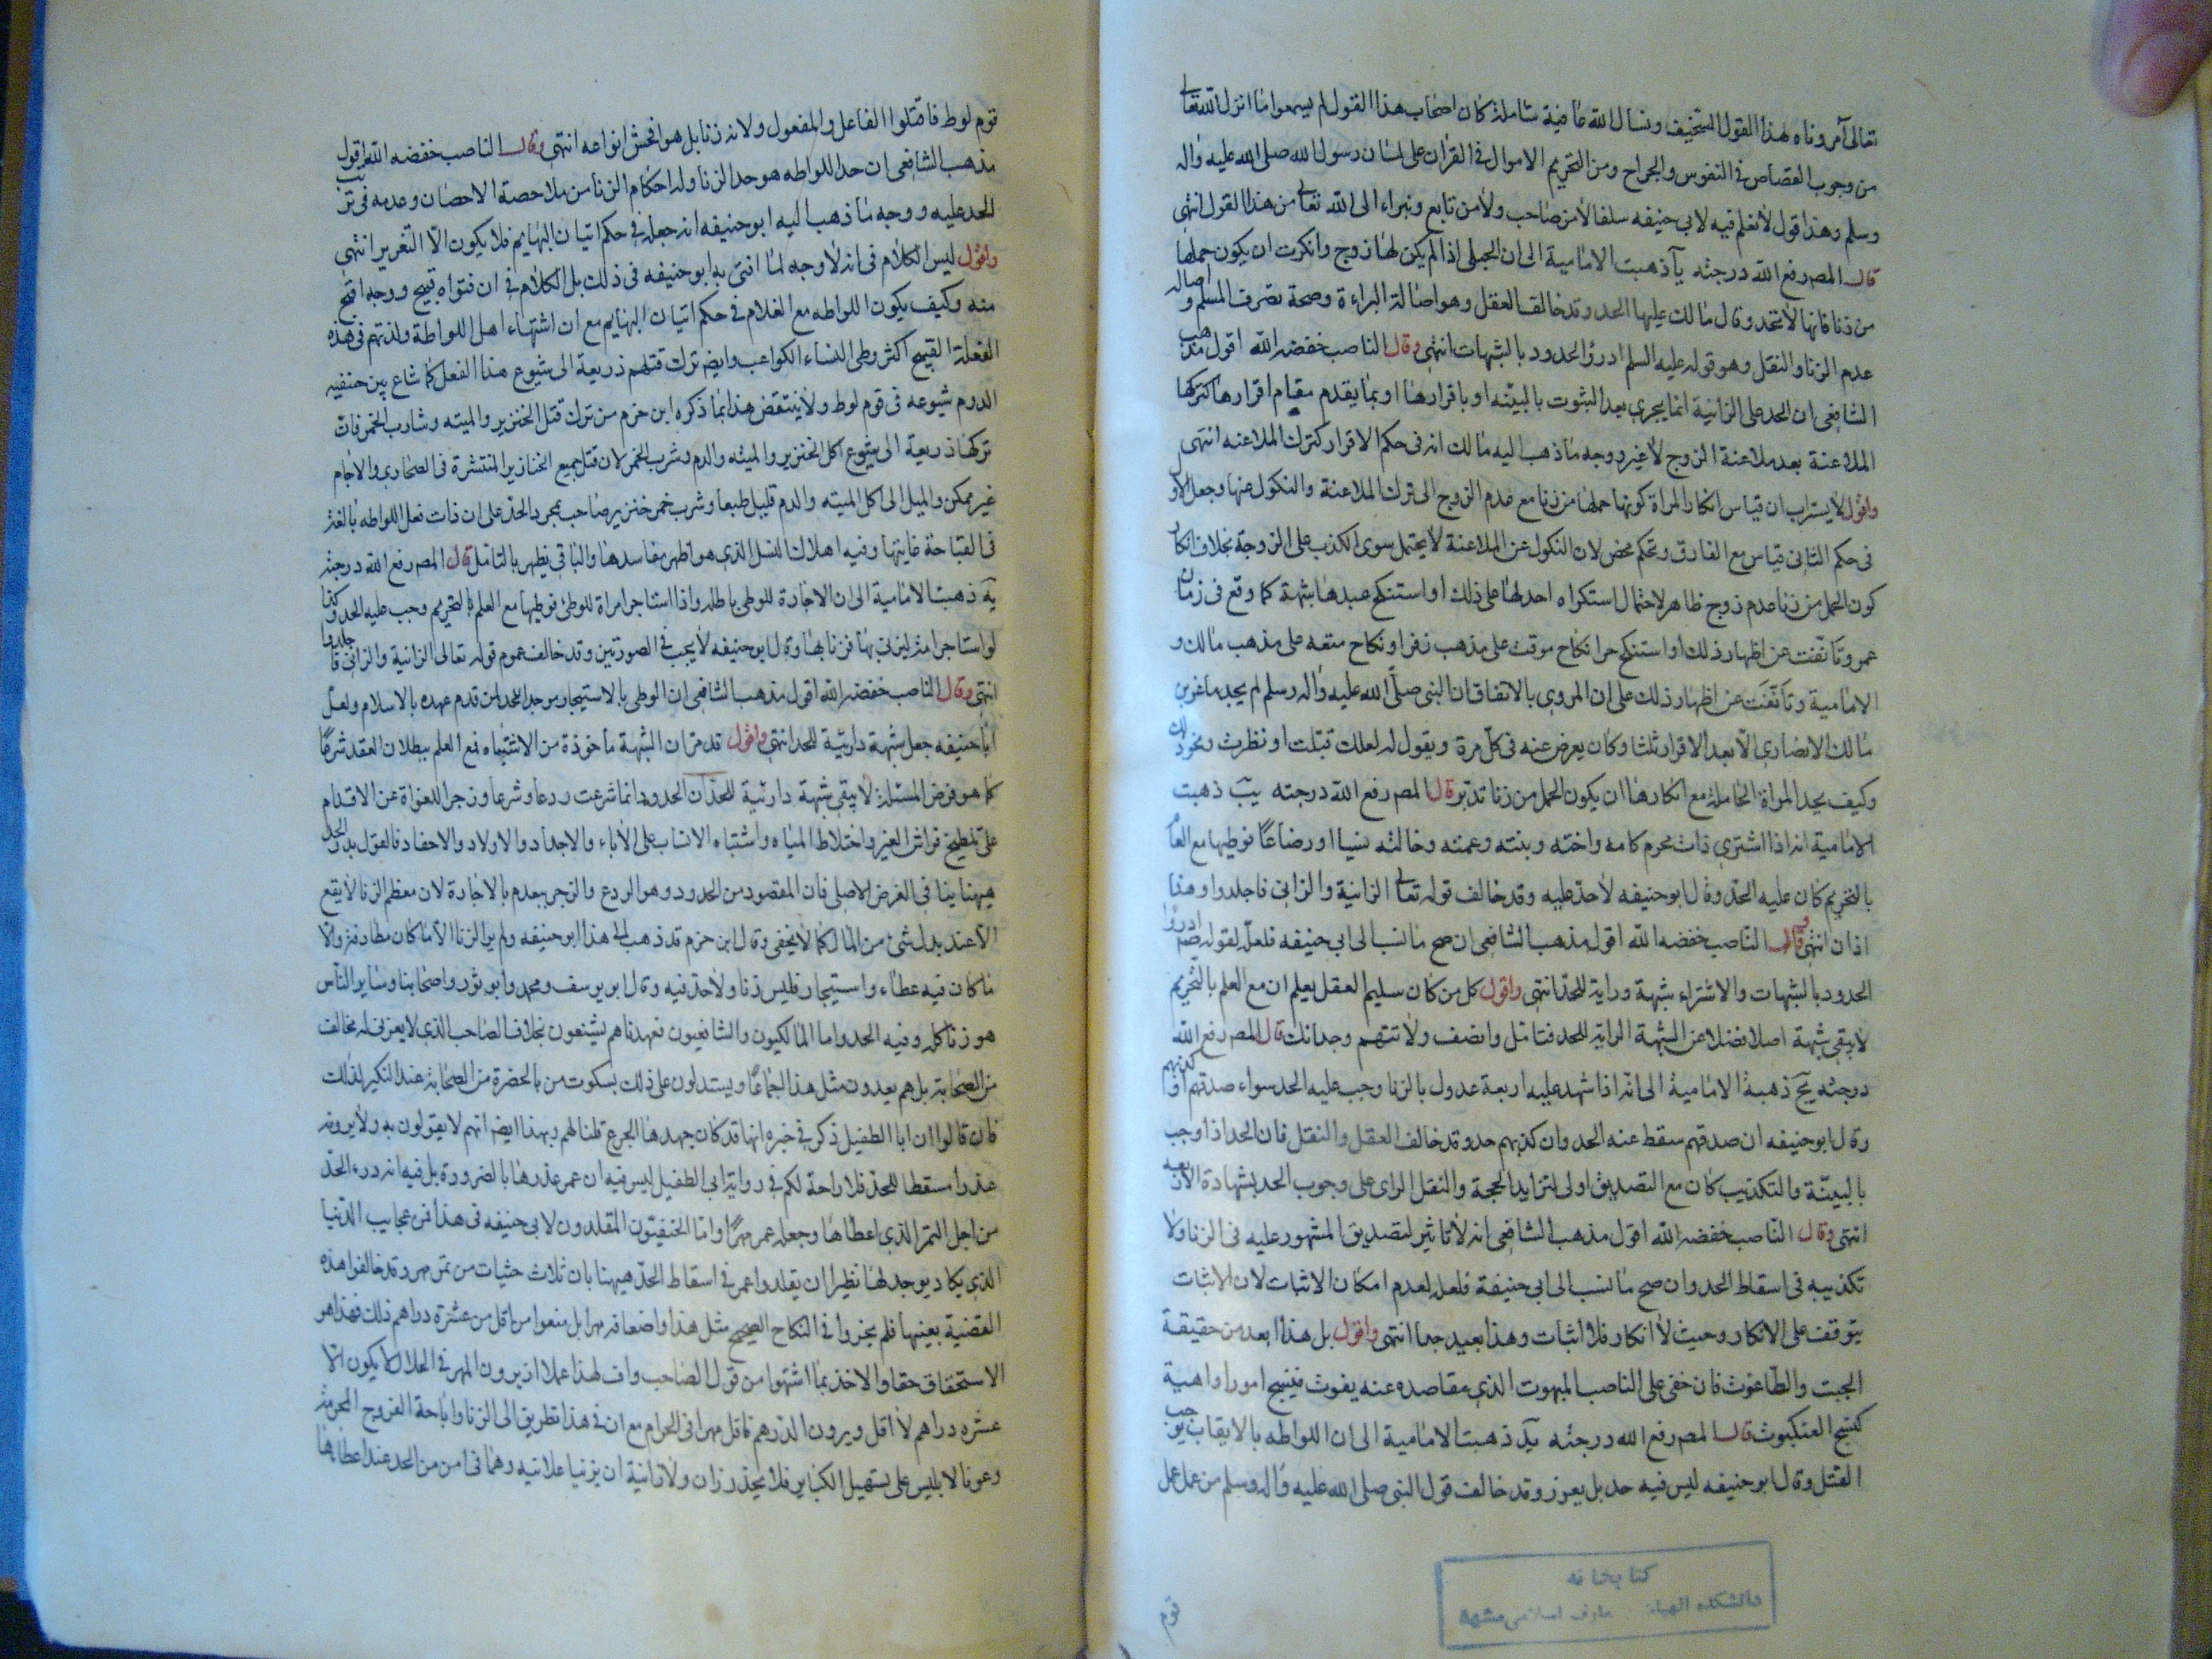 تعالى آمروناه هذا القول السخيف ونسال الله عافية شاملة كان اصحاب هذا القول لم يسمعوا ما انزل الله تعالى
من وجوب القصاص فى النفوس والجراح ومن التحريم الاموال فى القران على لسان رسول الله صلى الله عليه واله
وسلم وهذا قول لا نعلم فيه لابى حنيفه سلفا لا من صاحب ولا من تابع ونبراء الى الله تعالى من هذا القول انتهى
قال المصر رفع الله درجته يآ ذهبت الامامية الى ان الحبلى اذا لم يكن لها زوج وانكرت ان يكون حملها
من زنا فانها لا تحد وقال مالك عليها الحد وقد خالف العقل وهو اصالة البراءة وصحة تصرف المسلم واصالة
عدم الزنا والنقل وهو قوله عليه السلم ادرؤا الحدود بالشبهات انتهى وقال الناصب خفضه الله اقول مذهب
الشافعى ان الحد على الزانية انما يجرى بعد الثبوت بالبينه او باقرارها او بما يقدم مقام اقرارها كتركها
الملاعنة بعد ملاعنة الزوج لا غير ووجه ما ذهب اليه مالك انه فى حكم الاقرار كترك الملاعنه انتهى
واقول لا يستراب ان قياس انكار المراة كونها حملها من زنا مع عدم الزوج الى ترك الملاعنة والنكول عنها وجعل الاول
فى حكم الثانى قياس مع الفارق وتحكم محض لان النكول عن الملاعنة لا يحتمل سوى الكذب على الزوجة بخلاف انكار
كون الحمل من زنا عدم زوج ظاهر لاحتمال استكراه احد لها على ذلك او استنكح عبدها بشبهة كما وقع فى زمان
عمر وتانفت عن اظهار ذلك او استنكح حرا نكاح موقت على مذهب زفر او نكاح متعه على مذهب مالك و
الامامية وتانفت عن اظهار ذلك على ان المروى بالاتفاق ان النبى صلى الله عليه واله وسلم لم يحد ماعز بن
مالك الانصارى الا بعد الاقرار ثلثا وكان يعرض عنه فى كل مرة ويقول له لعلك قبلت او نظرت ونحو ذلك
وكيف يحد المراة الحاملة مع انكارها ان يكون الحمل من زنا تدبر قال المصر رفع الله درجته يب ذهبت
الامامية انه اذا اشترى ذات محرم كامه واخته وبنته وعمته وخالته نسبا او رضاعا فوطيها مع العلم
بالتحريم كان عليه الحد وقال ابو حنيفه لا حد عليه وقد خالف قوله تعالى الزانية والزانى فاجلدوا وهذا
اذان انتهى وقال الناصب خفضه الله اقول مذهب الشافعى ان صح ما نسب الى ابى حنيفه فلعل لقوله صم ادرؤا
الحدود بالشبهات والاشتراء شبهة وراية للحد انتهى واقول كل من كان سليم العقل يعلم ان مع العلم بالتحريم
لا يبقى شبهة اصلا فضلا عن الشبهة الراية للحد فتامل وانصف ولا تتهم وجدانك قال المصر رفع الله
درجته يج ذهبة الامامية الى انه اذا شهد عليه اربعة عدول بالزنا وجب عليه الحد سواء صدقهم او كذبهم
وقال ابو حنيفه ان صدقهم سقط عنه الحد وان كذبهم حد وقد خالف العقل والنقل فان الحد اذا وجب
بالبينة والتكذيب كان مع التصديق اولى لتزايد الحجة والنقل الراى على وجوب الحد بشهادة الاربعه
انتهى وقال الناصب خفضه الله اقول مذهب الشافعى انه لا تاثير لتصديق المشهور عليه فى الزنا ولا
تكذيبه فى اسقاط الحد وان صح ما نسب الى ابى حنيفة فلعل لعدم امكان الاثبات لان الاثبات
يتوقف على الانكار وحيث لا انكار فلا اثبات وهذا بعيد جدا انتهى واقول بل هذا ابعد من حقيقة
الجبت والطاغوت فان خفى على الناصب المبهوت الذى مقاصده عنه يفوت فينسج امورا واهية
كنسج العنكبوت قال المصر رفع الله درجته يد ذهبت الامامية الى ان اللواطه بالايقاب يوجب
القتل وقال ابو حنيفه ليس فيه حد بل يعزر وقد خالف قول النبى صلى الله عليه واله وسلم من عمل عمل
قوم
كتابخانه
دانشكده الهيات معارف اسلامى مشهد
قوم لوط فاقتلوا الفاعل والمفعول ولانه زنا بل هو افحش انواعه انتهى وقال الناصب خفضه الله اقول
مذهب الشافعى ان حد اللواطه هو حد الزنا وله احكام الزنا من ملاحصة الاحصان وعدمه فى ترتب
الحد عليه ووجه ما ذهب اليه ابو حنيفه انه جعله فى حكم اتيان البهايم فلا يكون الا التعزير انتهى
واقول ليس الكلام فى انه لا وجه لما افتى به ابو حنيفه فى ذلك بل الكلام فى ان فتواه قبيح ووجه اقبح
منه وكيف يكون اللواطه مع الغلام فى حكم اتيان البهايم مع ان اشتهاء اهل اللواطة ولذتهم فى هذه
الفعلة القبيح اكثر وطى النساء الكواعب وايضم ترك قتلهم ذريعة الى شيوع هذا الفعل كما شاع بين حنفيه
الروم شيوعه فى قوم لوط ولا ينتقض هذا بما ذكره ابن حزم من ترك قتل الخنزير والميته وشارب الخمر فان
تركها ذريعة الى شيوع اكل الخنزير والميته والدم وشرب الخمر لان قتل جميع الخنازير المنتشرة فى الصحارى والاجام
غير ممكن والميل الى اكل الميته والدم قليل طبعا وشرب خمر خنزير صاحب بمجرد الحد على ان ذات فعل اللواطه بالغة
فى القباحة غايتها وفيه اهلاك النسل الذى هو اظهر مفاسدها والباقى يظهر بالتامل قال المصر رفع الله درجته
يه ذهبت الامامية الى ان الاجارة للوطى باطله واذا استاجر امراة للوطى فوطيها مع العلم بالتحريم وجب عليه الحد وكذا
لو استاجر امة ليزنى بها فزنا بها وقال ابو حنيفه لا يجب فى الصورتين وقد خالف عموم قوله تعالى الزانية والزانى فاجلدوا
انتهى وقال الناصب خفضه الله اقول مذهب الشافعى ان الوطى بالاستيجار يوجب الحد لمن قدم عهده بالاسلام ولعل
ابا حنيفه جعل شبهة دارئة للحد انتهى واقول قد مر ان الشبهة ماخوذة من الاشتباه فمع العلم ببطلان العقد شرعا
كما هو فرض المسئلة لا يبقى شبهة دارئة للحد لان الحدود انما شرعت ردعا وشرعا وزجرا للعزاة عن الاقدام
على تلطيخ فراش الغير واختلاط المياه واشتباه الانساب على الاباء والاجداد والاولاد والاحفاد فالقول بدرء الحد
هيهنا ينافى الغرض الاصلى فان المقصود من الحدود وهو الردع والزجر يبعدم بالاجارة لان معظم الزنا لا يقع
الا عند بدل شئ من المال كما لا يخفى وقال ابن حزم قد ذهب الى هذا ابو حنيفه ولم ير الزنا الا ما كان مطارفة والا
ما كان فيه عطاء واستيجار فليس زنا ولا حد فيه وقال ابو يوسف ومحمد وابو ثور واصحابنا وساير الناس
هو زنا كله وفيه الحد واما المالكيون والشافعيون فعهدناهم يشنعون بخلاف الصاحب الذى لا يعرف له مخالف
من الصحابة بل هم يعدون مثل هذا اجماعا ويستدلون على ذلك بسكوت من بالحضرة من الصحابة عند النكير لذلك
فان قالوا ان ابا الطفيل ذكر فى خبره انها قد كان جهدها الجرع قلنا لهم وبهذا ايضم انهم لا يقولون به ولا يرونه
عذرا مسقطا للحد فلا راحة لكم فى رواية ابى الطفيل ليس فيه ان عمر عذرها بالضرورة بل فيه انه درء الحد
من اجل التمر الذى اعطاها وجعله عمر مهرا واما الحنفيون المقلدون لابى حنيفه فى هذا فمن عجايب الدنيا
الذى يكاد يوجد لها نظير ان يقلدوا عمر فى اسقاط الحد هيهنا بان ثلاث حثيات من تمر مهر وقد خالفوا هذه
القضية بعينها فلم يجزوا فى النكاح الصحيح مثل هذا واضعافه مهرا بل منعوا من اقل من عشرة دراهم ذلك فهذا هو
الاستحقاق حقا والاخذ بما اشتهوا من قول الصاحب واف لهذا عملا اذ يرون المهر فى الحلال لا يكون الا
عشره دراهم لا اقل ويرون الدرهم فاقل مهرا فى الحرام مع ان فى هذا تطريق الى الزنا واباحة الفروج المحرمة
وعونا لابليس على تسهيل الكباير فلا يحذر زان ولا زانية ان يزنيا علانيه وهما فى امن من الحد عند اعطائها